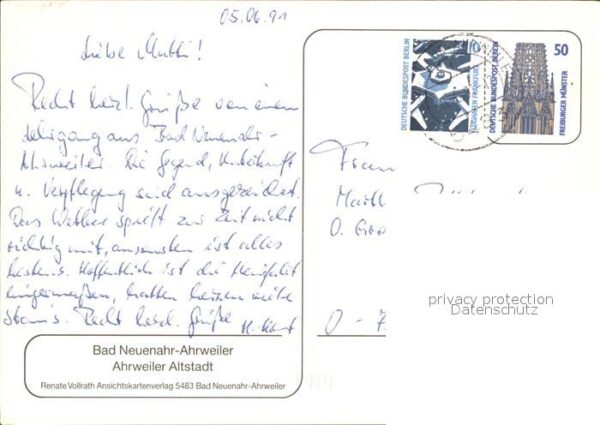 05.06.91
Liebe Mutti!
Recht herzl. Grüße von einem
Lehrgang aus Bad Neuenahr-
Ahrweiler. Die Gegend, Unterkunft
u. Verpflegung sind ausgezeichnet.
Das Wetter spielt zur Zeit nicht
richtig mit, ansonsten ist alles
bestens. Hoffentlich ist die
einigermaßen, hatten
Recht herzl. Grüße
10
DEUTSCHE BUNDESPOST BERLIN
FLUGHAFEN FRANKFURT
50
DEUTSCHE BUNDESPOST BERLIN
FREIBURGER MÜNSTER
Frau
O.
O - 7
privacy protection
Datenschutz
Bad Neuenahr-Ahrweiler
Ahrweiler Altstadt
Renate Vollrath Ansichtskartenverlag 5483 Bad Neuenahr-Ahrweiler